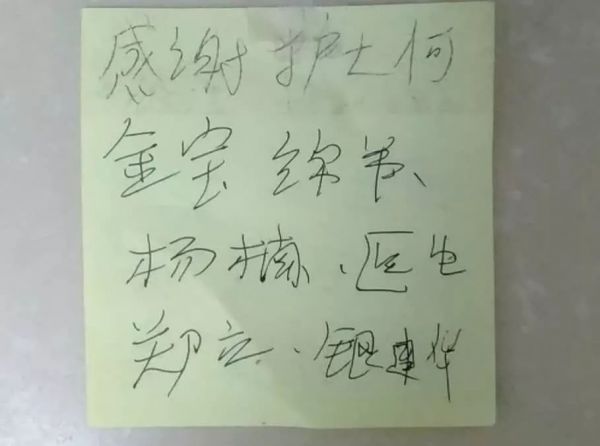 感谢护士何
金宝 
杨楠、医生
郑立、银建华